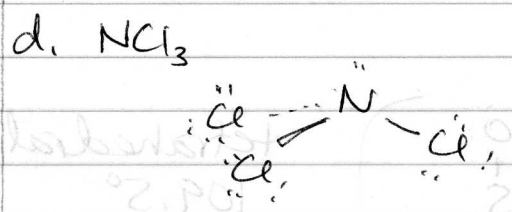 d. NCl₃
N
Cl
Cl
Cl